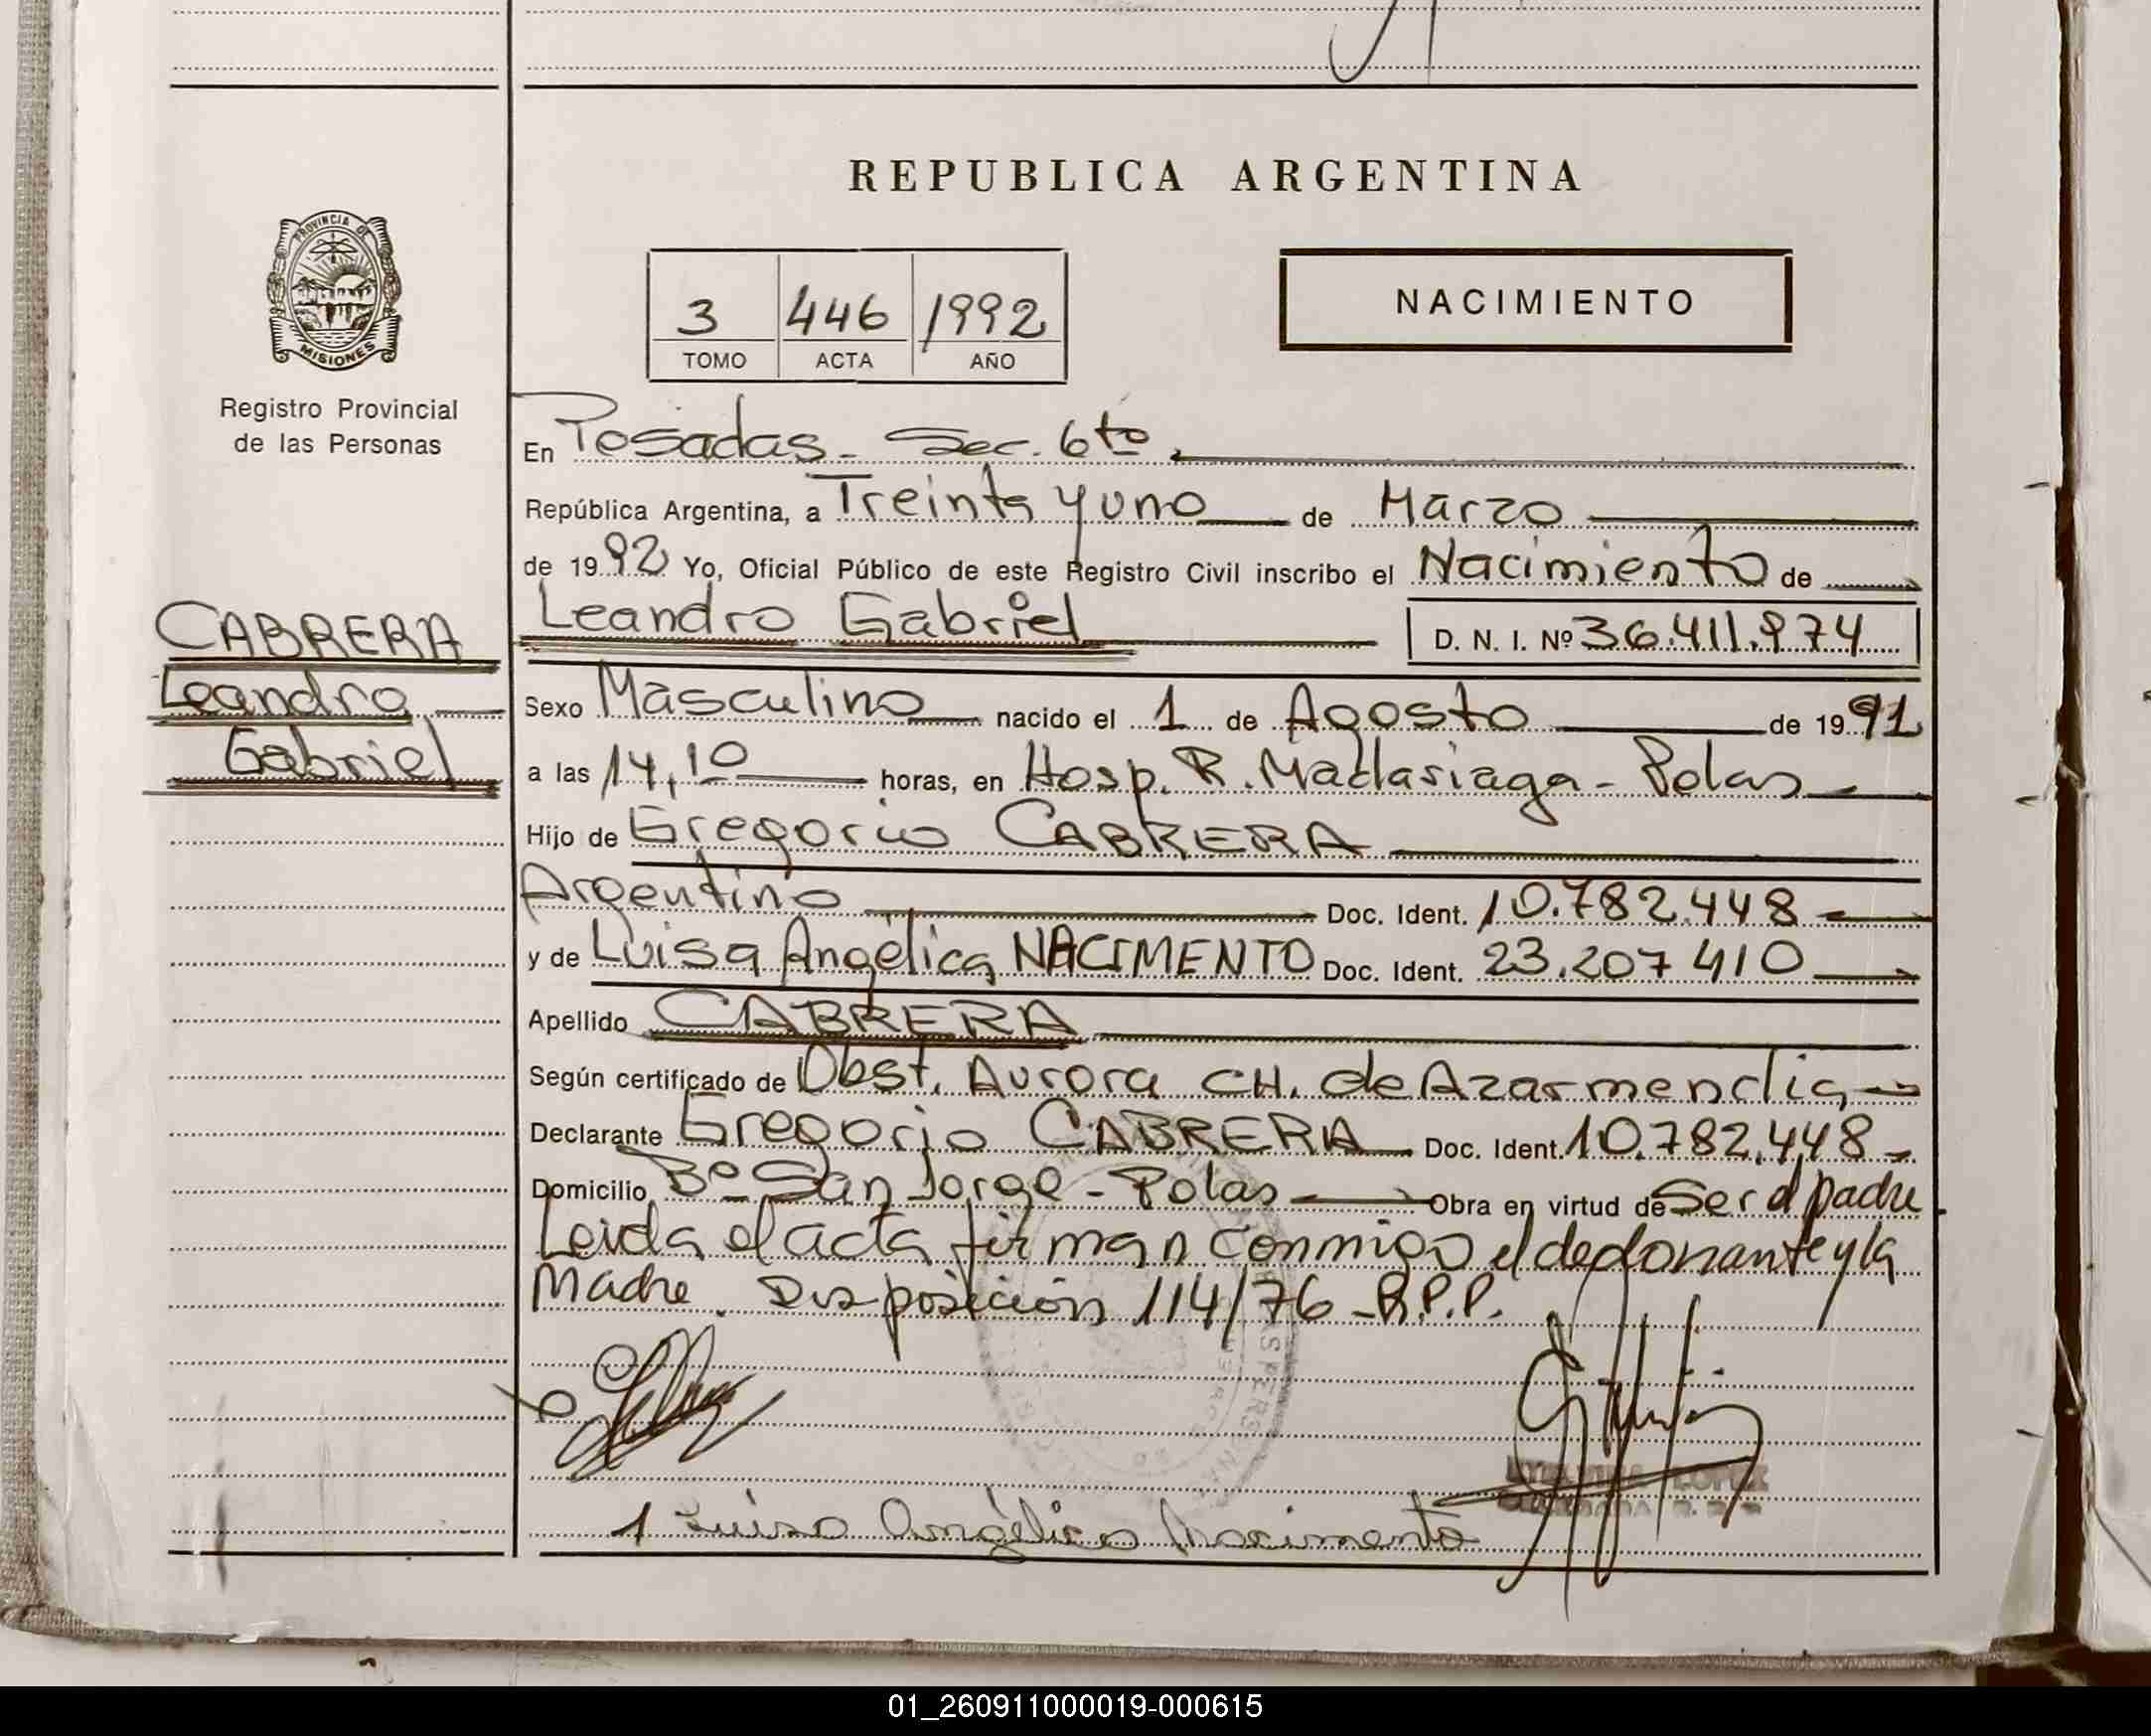 REPUBLICA ARGENTINA
PROVINCIA DE
MISIONES
Registro Provincial
de las Personas
3 446 1992
TOMO ACTA AÑO
NACIMIENTO
En Posadas - Sec. 6to
República Argentina, a Treinta y uno de Marzo
de 1992 Yo, Oficial Público de este Registro Civil inscribo el Nacimiento de
CABRERA
Leandro
Gabriel
Leandro Gabriel D. N. I. Nº 36.411.974
Sexo Masculino nacido el 1 de Agosto de 1991
a las 14,10 horas, en Hosp. R. Madariaga - Pdas
Hijo de Gregorio CABRERA
Argentino Doc. Ident. 10.782.448
y de Luisa Angélica NACIMENTO Doc. Ident. 23.207 410
Apellido CABRERA
Según certificado de Obst. Aurora CH. de Azarmendia
Declarante Gregorio CABRERA Doc. Ident. 10.782.448
Domicilio Bº San Jorge - Pdas Obra en virtud de Ser el padre
Leida el acta firman conmigo el declarante y la
Madre. Disposición 114/76 - R.P.P.
LOPEZ
1 Luisa Angélica Nacimento
01_260911000019-000615